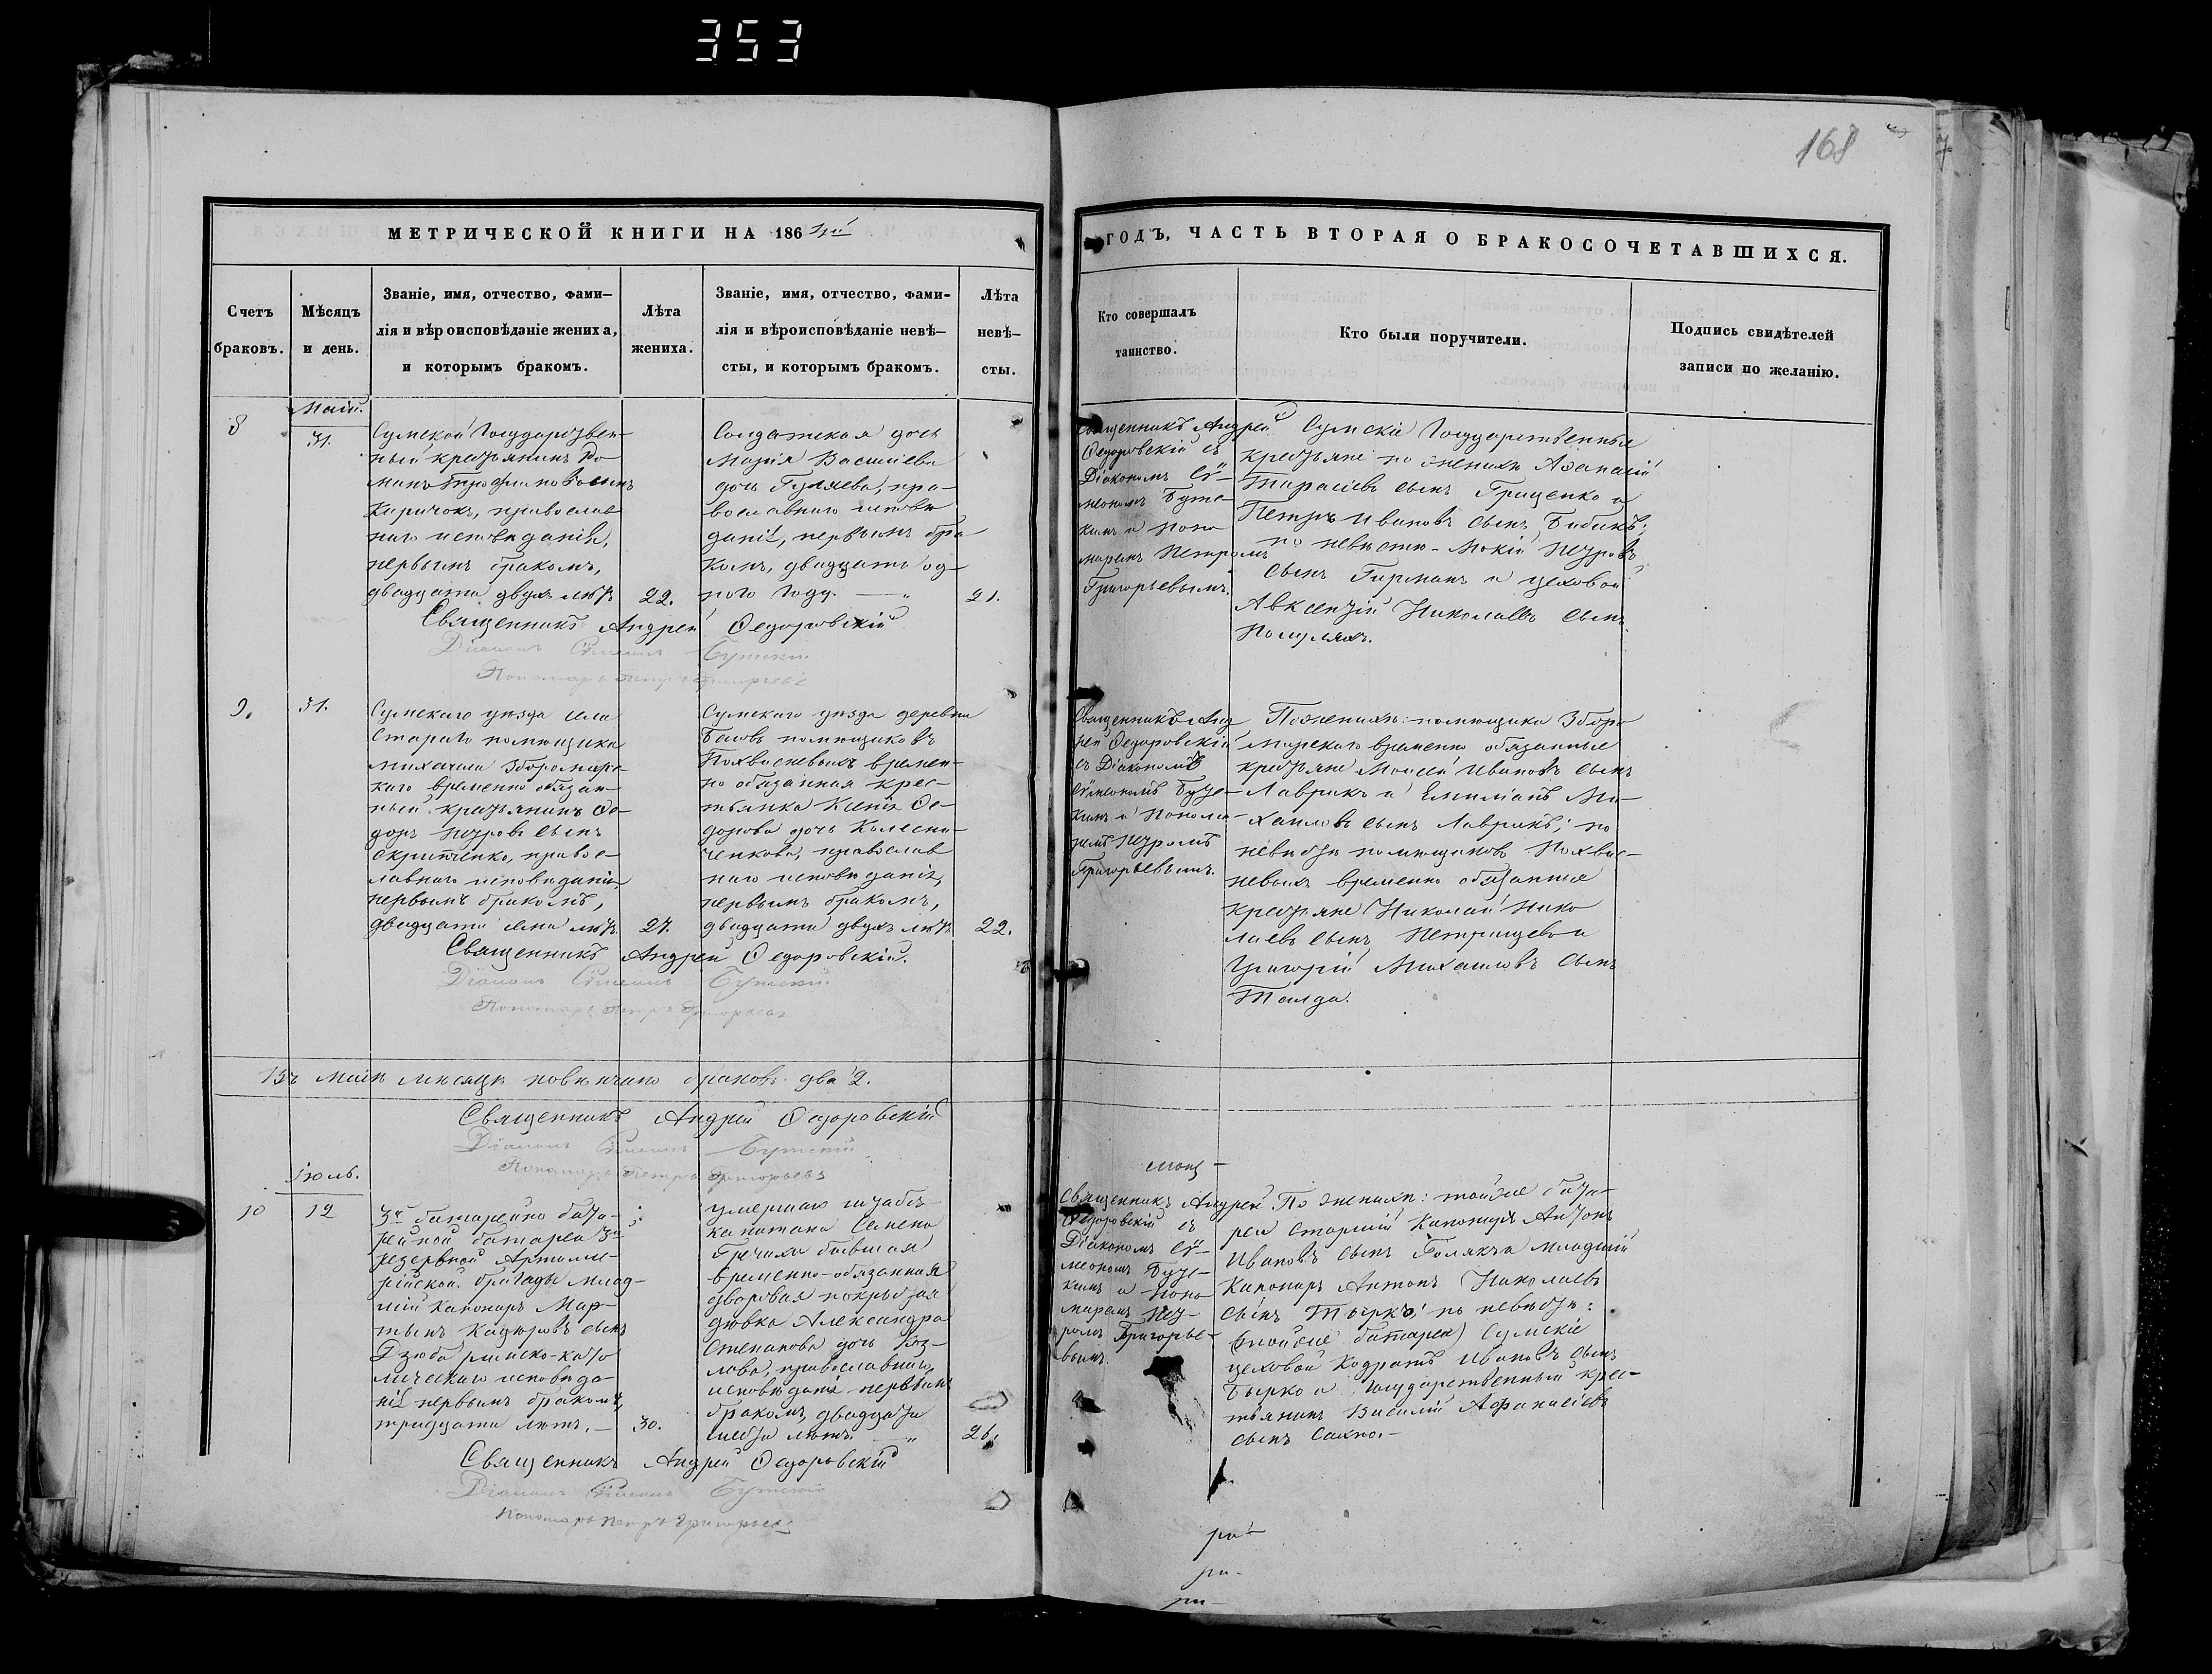 353
168
МЕТРИЧЕСКОЙ КНИГИ НА 186
ГОДЪ, ЧАСТЬ ВТОРАЯ О БРАКОСОЧЕТАВШИХСЯ.
Счетъ
браковъ.
Мѣсяцъ
и день.
Званіе, имя, отчество, фами-
лія и вѣроисповѣданіе жениха,
и которымъ бракомъ.
Лѣта
жениха.
Званіе, имя, отчество, фами-
лія и вѣроисповѣданіе невѣ-
сты, и которымъ бракомъ.
Лѣта
невѣ-
сты.
Кто совершалъ
таинство.
Кто были поручители.
Подпись свидѣтелей
записи по желанію.
8
Май.
31.
Сумской Государствен-
ный крестьянинъ Ро-
манъ Трофимовъ сынъ
Киричокъ, православ
наго исповѣданія,
первымъ бракомъ,
двадцати двухъ лѣтъ
22.
Солдатская дочь
Марія Василіева
дочь Гуляева, пра-
вославнаго исповѣ
данія, первымъ бра-
комъ, двадцать од-
ного году.
21.
Священникъ Андрей
Ѳедоровскій съ
Діакономъ Сѵ-
меономъ Бутс-
кимъ и поно
маремъ Петромъ
Григорьевымъ.
Сумскіе Государственные
крестьяне по женихѣ Аѳанасій
Тарасіевъ сынъ Гриценко и
Петръ Ивановъ сынъ Бибикъ;
по невѣстѣ - Мокій Петровъ
сынъ Гирманъ и цеховой
Авксентій Николаевъ сынъ
Священникъ Андрей Ѳедоровскій
Діаконъ Сѵмеонъ Бутскій
Пономарь Петръ Григорьевъ
9.
31.
Сумскаго уѣзда села
Стараго помѣщика
Михаила Збороміре-
каго временно обязан-
ный крестьянинъ Ѳе-
доръ Петровъ сынъ
Скрипченко, правос-
лавнаго исповѣданія,
первымъ бракомъ,
двадцати семи лѣтъ.
27.
Сумскаго уѣзда деревни
Басовъ помѣщиковъ
Похвисневыхъ времен-
но обязанная крес-
тьянка Ксенія Ѳе-
дорова дочь Колесни-
ченкова, православ
наго исповѣданія,
первымъ бракомъ,
двадцати двухъ лѣтъ
22.
Священникъ Анд
рей Ѳедоровскій
съ Діакономъ
Сѵмеономъ Бутс-
кимъ и понома
ремъ Петромъ
Григорьевымъ.
По женихѣ: помѣщика Зборо
мирскаго временно обязанные
крестьяне Моисей Ивановъ сынъ
Лаврикъ и Емиліанъ Ми-
хаиловъ сынъ Лаврикъ; по
невѣстѣ помѣщиковъ Похвис-
невыхъ временно обязанные
крестьяне Николай Нико
лаевъ сынъ Петрищевъ и
Григорій Михаиловъ сынъ
Священникъ Андрей Ѳедоровскій.
Діаконъ Сѵмеонъ Бутскій
Пономарь Петръ Григорьевъ
Въ маѣ мѣсяцѣ повѣнчано браковъ два 2.
Священникъ Андрей Ѳедоровскій
Діаконъ Сѵмеонъ Бутскій
Пономарь Петръ Григорьевъ
Іюль.
10
12
3й батарейно бата-
рейной батареи 3й
резервной Артилле-
рійской бригады млад-
шій канониръ Мар-
тынъ Кадюровъ сынъ
Дзюба римско-като
лическаго исповѣда-
нія первымъ бракомъ,
тридцати лѣтъ.
30.
умершаго штабсъ-
капитана Семена
Гречихи бывшая
временно-обязанная
дворовая покрытая
дѣвка Александра
Степанова дочь Коз-
лова, православнаго
исповѣданія первымъ
бракомъ, двадцати
шести лѣтъ.
26.
Священникъ Андрей
Ѳедоровскій съ
Діакономъ Сѵ-
меономъ Бутс-
кимъ и поно
маремъ Пет-
ромъ Григорье-
вымъ.
По женихѣ: тойже бата-
реи старшій канониръ Антонъ
Ивановъ сынъ Полякъ и младшій
канониръ Антонъ Николаевъ
сынъ Тырко; по невѣстѣ:
(тойже батареи) Сумскіе
цеховой Кодратъ Ивановъ сынъ
Бырко и Государственный крес-
тьянинъ Василій Аѳанасіевъ
сынъ Сахно.
Священникъ Андрей Ѳедоровскій
Діаконъ Сѵмеонъ Бутскій
Пономарь Петръ Григорьевъ